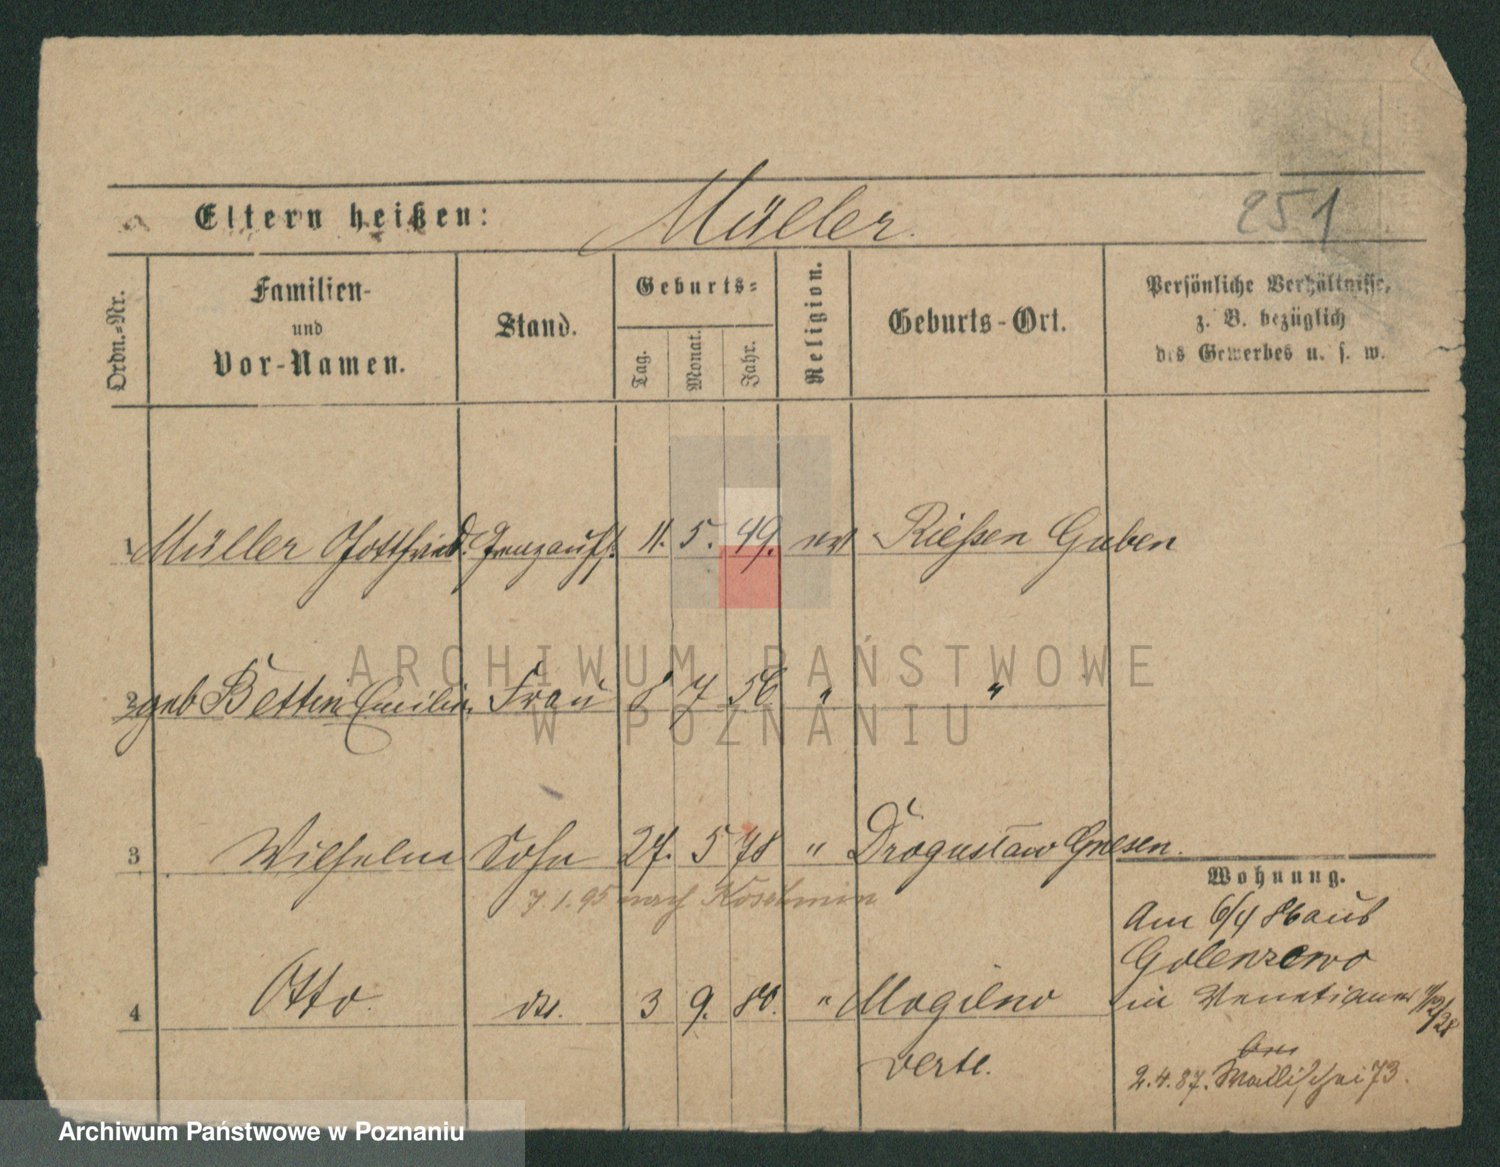 251
Eltern heißen: Müller.
Ordn.-Nr.
Familien-
und
Vor-Namen.
Stand.
Geburts-
Tag.
Monat.
Jahr.
Religion.
Geburts-Ort.
Persönliche Verhältnisse,
z. B. bezüglich
des Gewerbes u. s. w.
1 Müller Gottfried. 11. 5. 49. ev Rießen Guben
2 geb Bettin Emilie Frau 8 7 56 " "
3 Wilhelm Sohn 27. 5 78 " Drogustaw Gnesen.
7.1.95 nach Koschmin
4 Otto. do. 3 9. 80. " Mogilno
verte.
Wohnung.
Am 6/4 86 aus
Golenzewo
in Venetianer
2.4.87. Wallischei 73.
ARCHIWUM PAŃSTWOWE
W POZNANIU
Archiwum Państwowe w Poznaniu